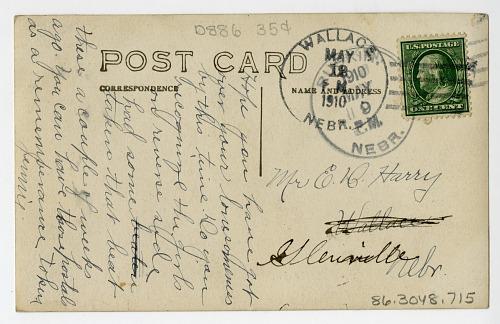 D886 35¢
POST CARD
CORRESPONDENCE
NAME AND ADDRESS
WALLACE
MAY
12
1910
NEBR.
MAY
9
1910
P.M.
NEBR.
U.S. POSTAGE
ONE CENT
Hope you have got
over your lonesomeness
by this time. Do you
recognize the girls
on reverse side
had some
taken that beat
these a couple of weeks
ago. You can have these postals
as a rememberance token
Mr E. R. Harry
Wallace
Glenville
Nebr.
86.3048.715